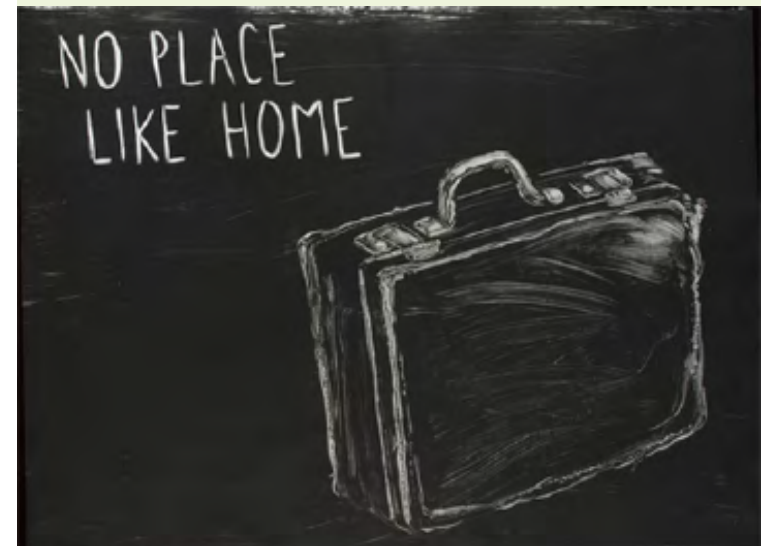 NO PLACE
LIKE HOME